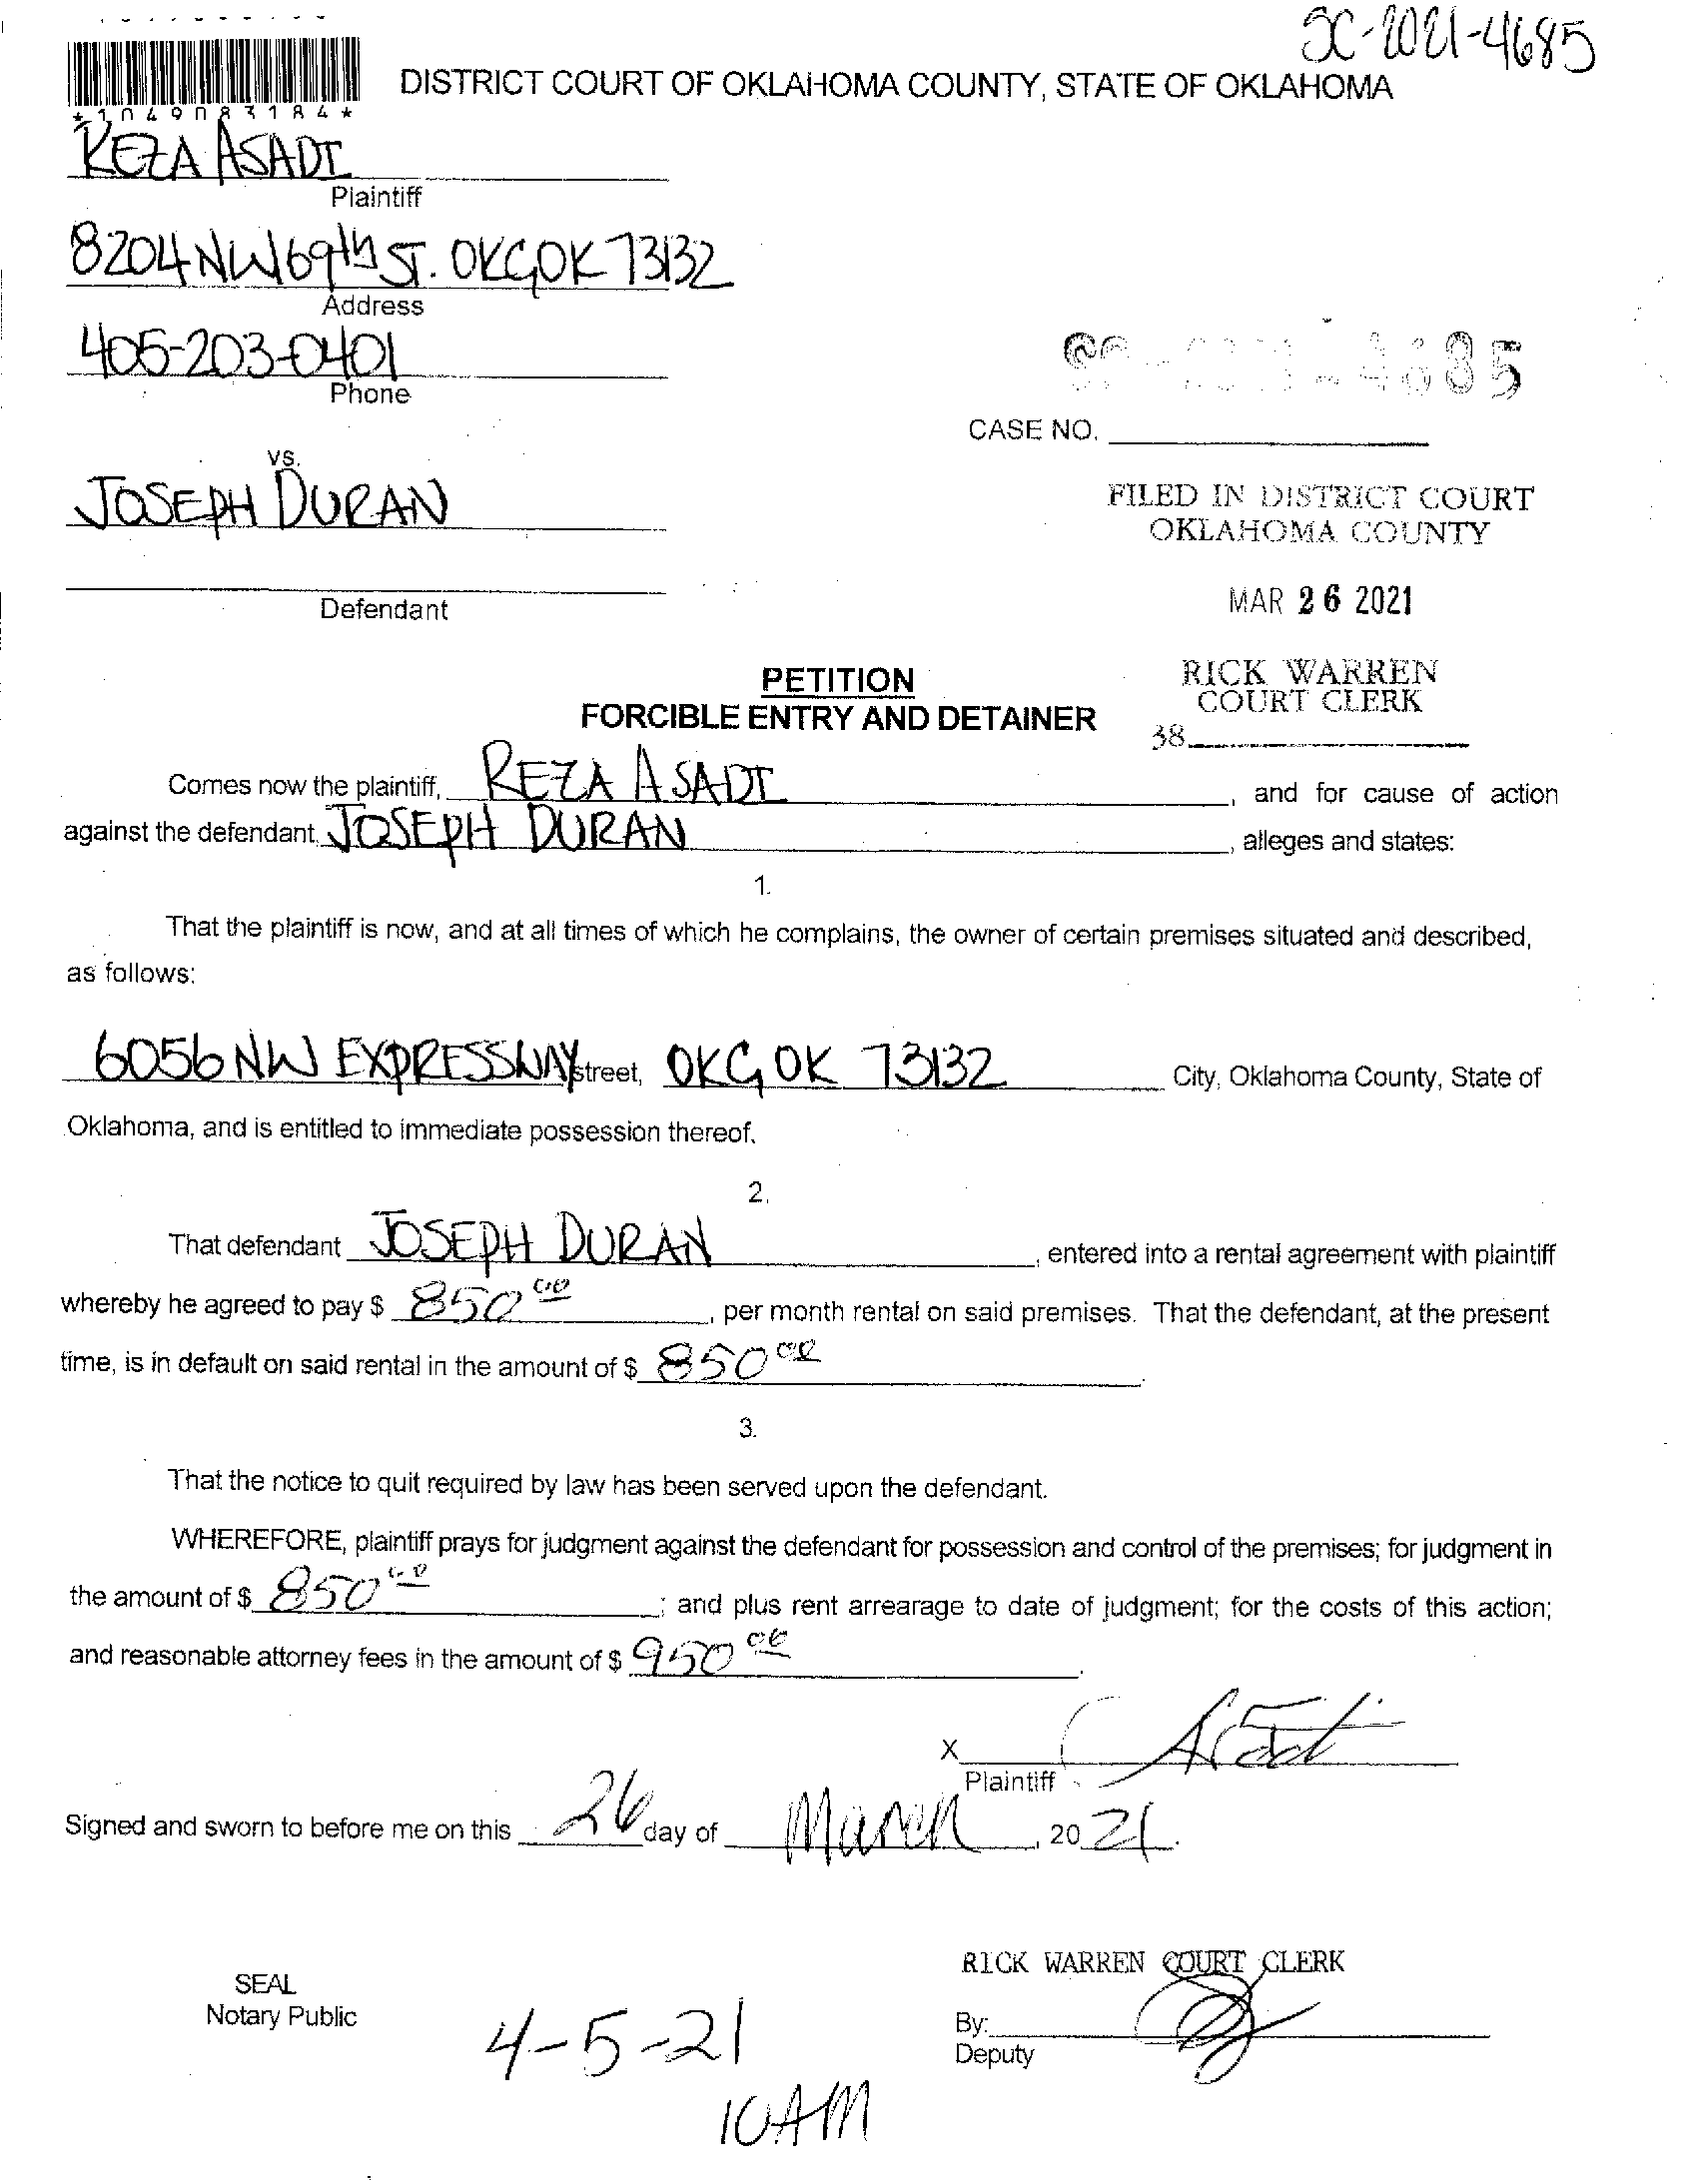 SC-2021-4685
*1049083184*
DISTRICT COURT OF OKLAHOMA COUNTY, STATE OF OKLAHOMA
REZA ASADI
Plaintiff
8204 NW 69th ST. OKC, OK 73132
Address
405-203-0401
Phone
4685
CASE NO.
vs.
JOSEPH DURAN
FILED IN DISTRICT COURT
OKLAHOMA COUNTY
Defendant
MAR 26 2021
PETITION
FORCIBLE ENTRY AND DETAINER
RICK WARREN
COURT CLERK
38
Comes now the plaintiff, REZA ASADI, and for cause of action
against the defendant, JOSEPH DURAN, alleges and states:
1.
That the plaintiff is now, and at all times of which he complains, the owner of certain premises situated and described,
as follows:
6056 NW EXPRESSWAY street, OKC, OK 73132 City, Oklahoma County, State of
Oklahoma, and is entitled to immediate possession thereof.
2.
That defendant JOSEPH DURAN, entered into a rental agreement with plaintiff
whereby he agreed to pay $ 850 00, per month rental on said premises. That the defendant, at the present
time, is in default on said rental in the amount of $ 850 00.
3.
That the notice to quit required by law has been served upon the defendant.
WHEREFORE, plaintiff prays for judgment against the defendant for possession and control of the premises; for judgment in
the amount of $ 850 00; and plus rent arrearage to date of judgment; for the costs of this action;
and reasonable attorney fees in the amount of $ 950 00.
X
Plaintiff
Signed and sworn to before me on this 26 day of March, 20 21.
RICK WARREN COURT CLERK
SEAL
Notary Public
By:
Deputy
4-5-21
10AM